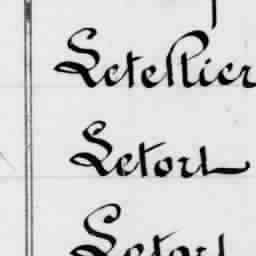 Letellier
Letort
Letort